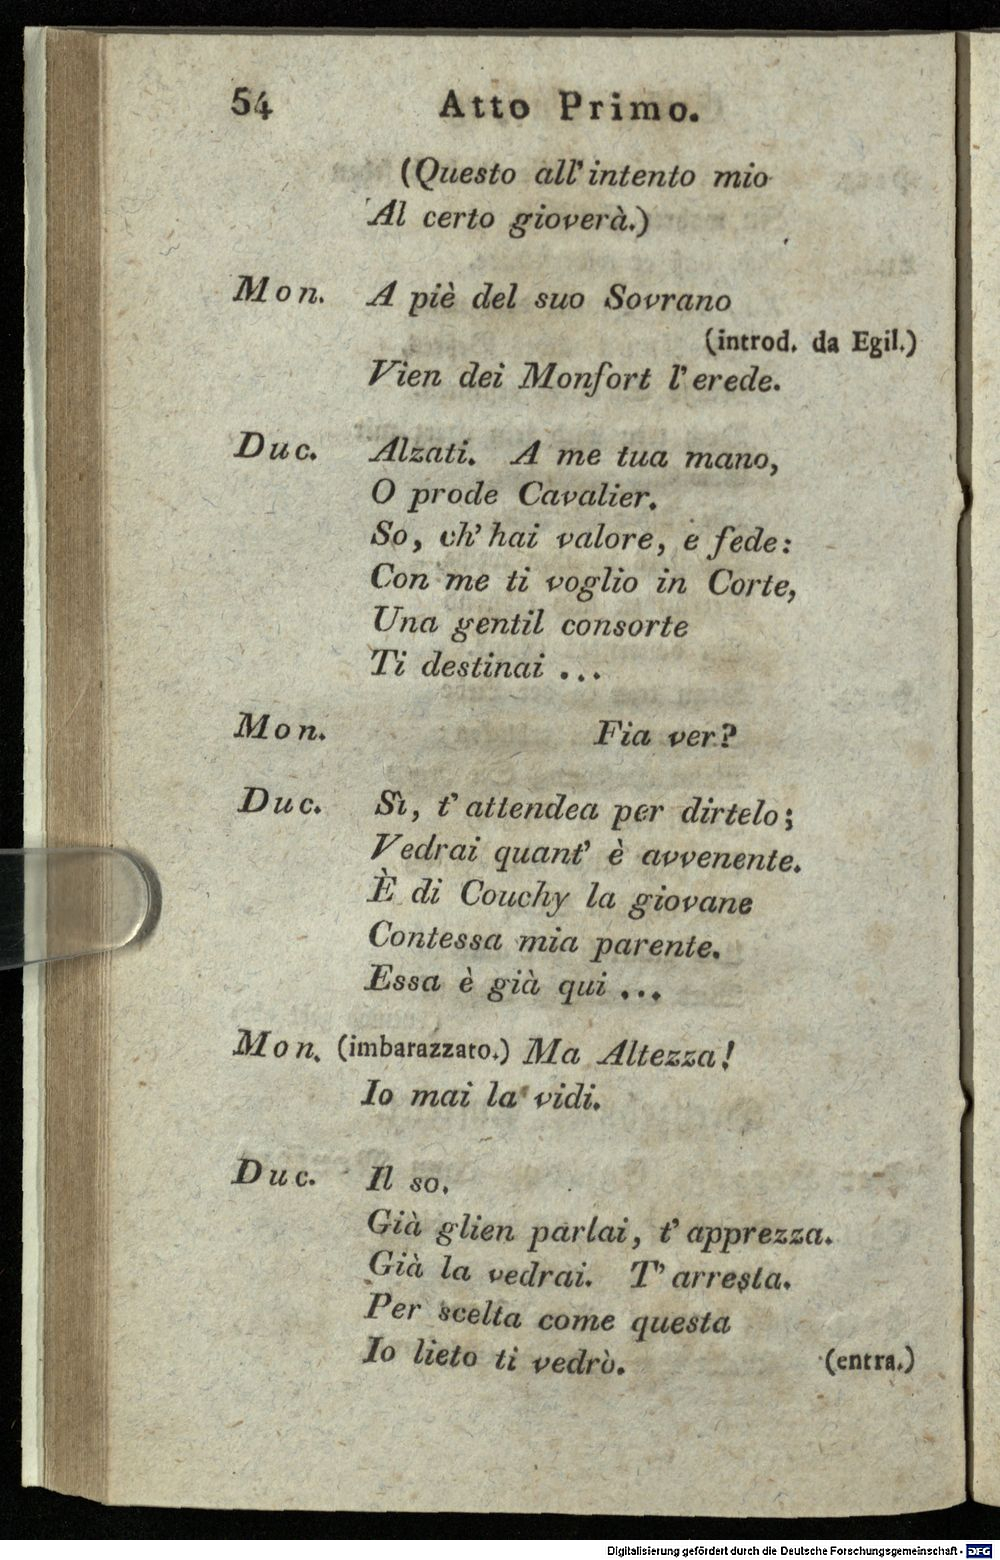 54 Atto Primo.
(Questo all' intento mio
Al certo gioverà.)
Mon. A piè del suo Sovrano
(introd. da Egil.)
Vien dei Monfort l' erede.
Duc. Alzati. A me tua mano,
O prode Cavalier.
So, ch' hai valore, e fede:
Con me ti voglio in Corte,
Una gentil consorte
Ti destinai ...
Mon. Fia ver?
Duc. Sì, t' attendea per dirtelo;
Vedrai quant' è avvenente.
È di Couchy la giovane
Contessa mia parente.
Essa è già qui ...
Mon. (imbarazzato.) Ma Altezza!
Io mai la vidi.
Duc. Il so.
Già glien parlai, t' apprezza.
Già la vedrai. T' arresta.
Per scelta come questa
Io lieto ti vedrò. (entra.)
Digitalisierung gefördert durch die Deutsche Forschungsgemeinschaft - DFG